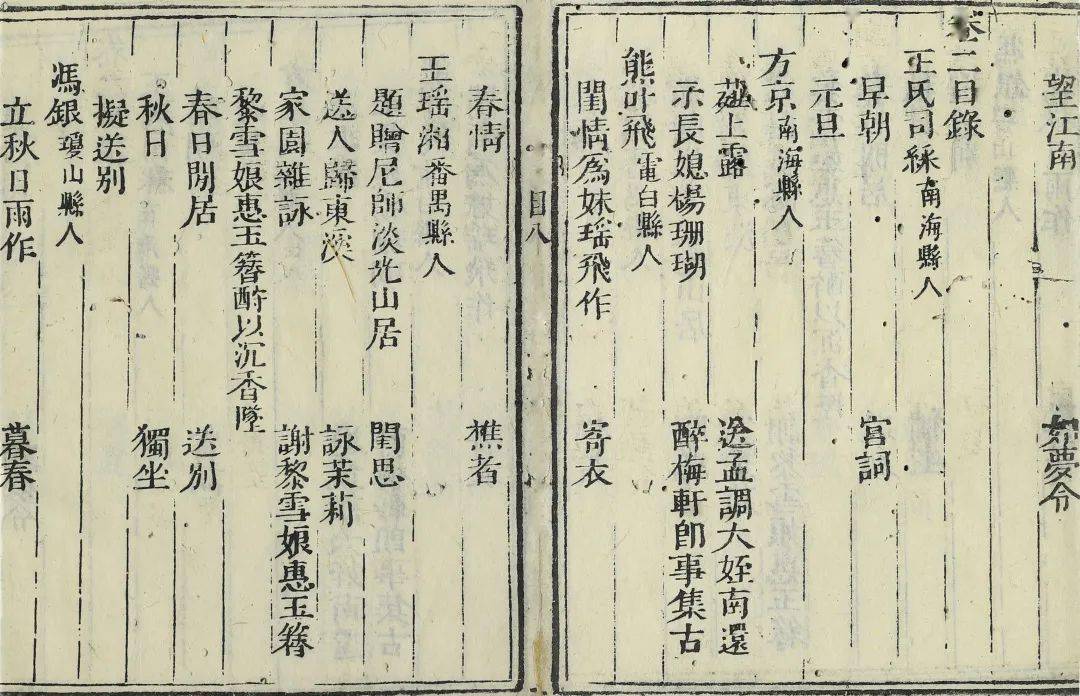 望江南　如夢令
卷二目錄
王氏司綵南海縣人
早朝　宮詞
元旦
方京南海縣人
薤上露　送孟調大姪南還
示長媳楊珊瑚　醉梅軒即事集古
熊叶飛電白縣人
閨情為妹瑶飛作　寄衣
目八
春情　樵者
王瑶湘番禺縣人
題贈尼師淡光山居　閨思
送人歸東溪　詠茉莉
家園雜詠　謝黎雪娘惠玉簪
黎雪娘惠玉簪酧以沉香墜
春日閒居　送別
秋日　獨坐
擬送別
馮銀瓊山縣人
立秋日雨作　暮春